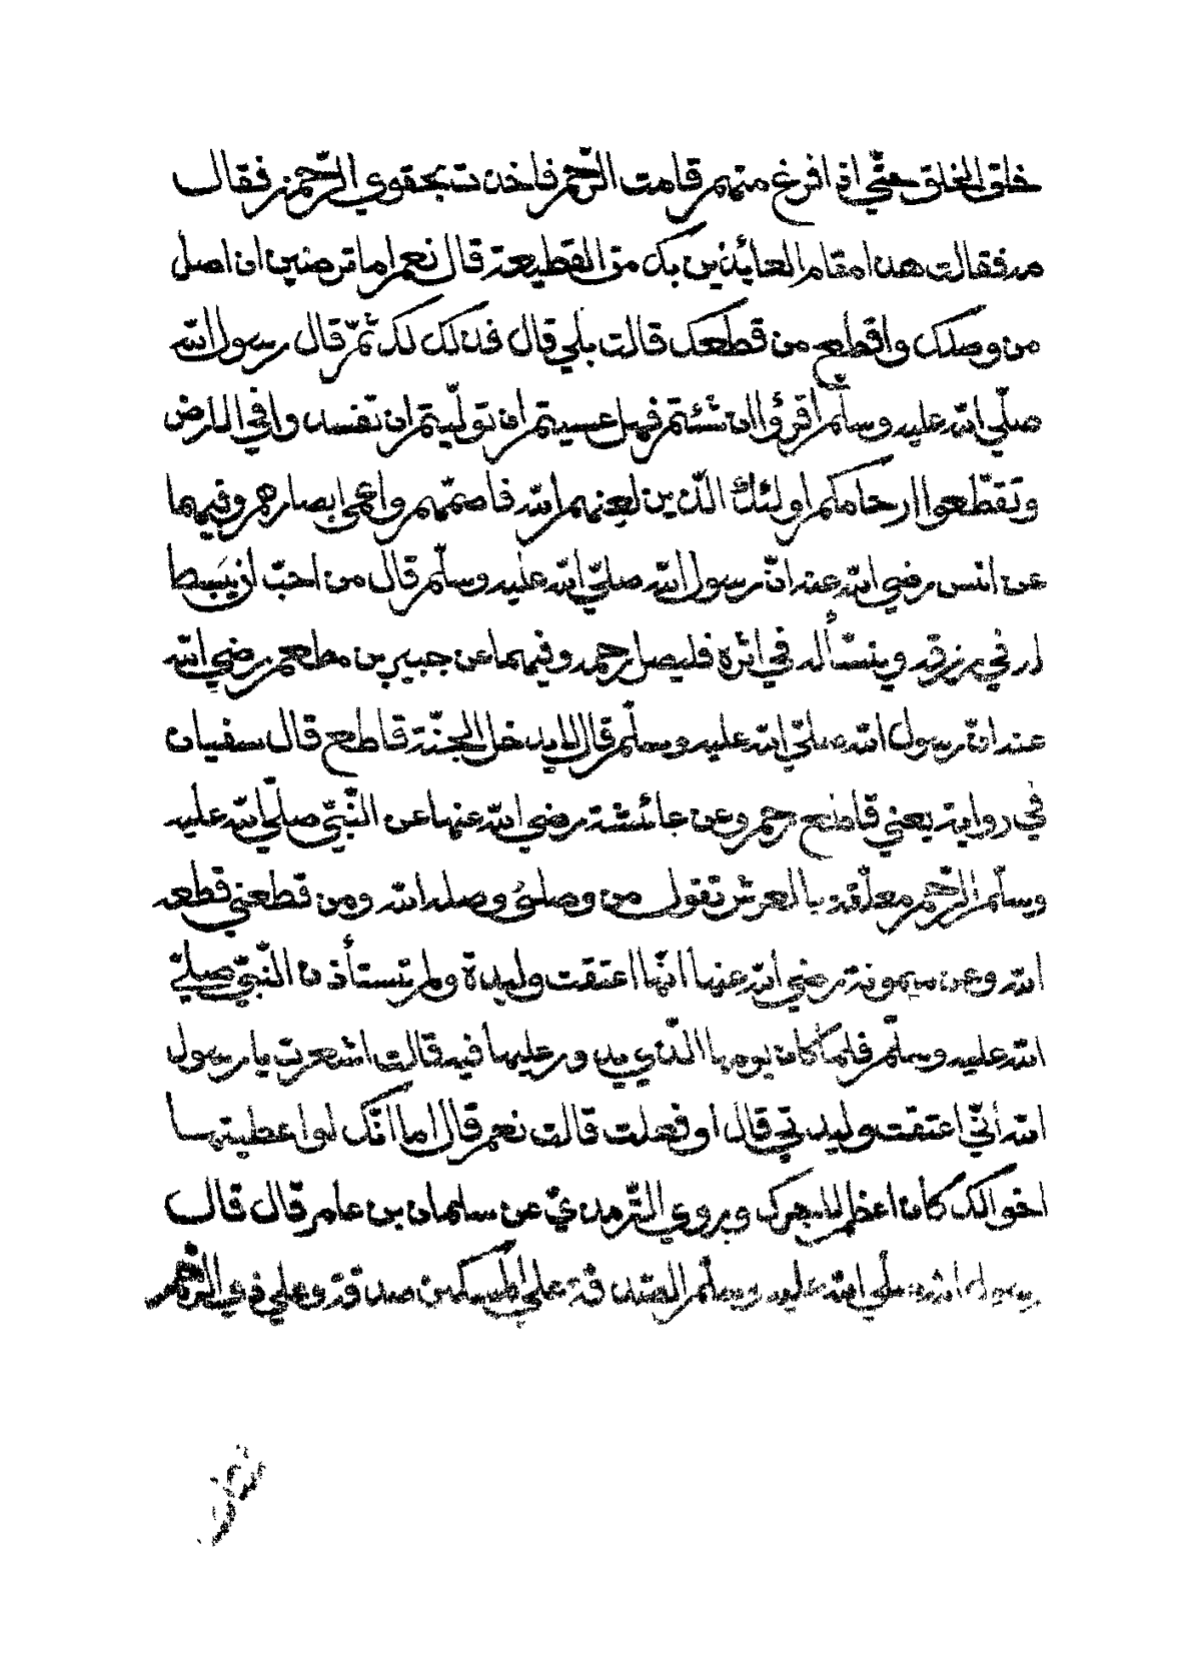 خلق الخلق حتّي اذا فرغ منهم قامت الرّحم فاخذت بحقوي الرّحمن فقال
مه فقالت هذا مقام العائذين بك من القطيعة قال نعم اما ترضين ان اصل
من وصلك واقطع من قطعك قالت بلي قال فذلك لك ثمّ قال رسول الله
صلّي الله عليه وسلّم اقرؤا ان شئتم فهل عسيتم ان تولّيتم ان تفسدوا في الارض
وتقطّعوا ارحامكم اولئك الّذين لعنهم الله فاصمّهم واعمي ابصارهم وفيهما
عن انس رضي الله عنه انّ رسول الله صلّي الله عليه وسلّم قال من احبّ ان يبسط
له في رزقه وينسّأله في اثره فليصل رحمه وفيهما عن جبير بن مطعم رضي الله
عنه انّ رسول الله صلّي الله عليه وسلّم قال لا يدخل الجنّة قاطع قال سفيان
في رواية يعني قاطع رحم وعن عائشة رضي الله عنها عن النّبيّ صلّي الله عليه
وسلّم الرّحم معلّقة بالعرش تقول من وصلني وصله الله ومن قطعني قطعه
الله وعن ميمونة رضي الله عنها انّها اعتقت وليدة ولم تستأذن النّبيّ صلّي
الله عليه وسلّم فلمّا كان يومها الّذي يدور عليها فيه قالت اشعرت يا رسول
الله انّي اعتقت وليدتي قال أو فعلت قالت نعم قال اما انّك لو اعطيتها
اخوالك كان اعظم لاجرك وروي التّرمذيّ عن سلمان بن عامر قال قال
رسول الله صلّي الله عليه وسلّم الصّدقة علي المسكين صدقة وعلي ذي الرّحم